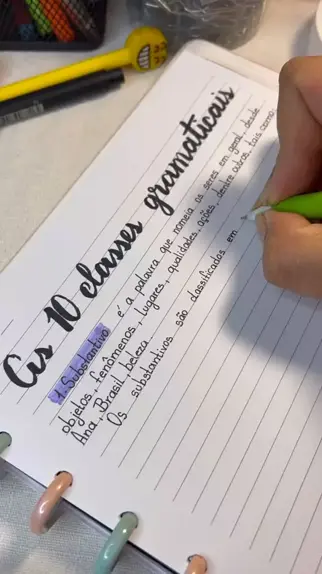 As 10 classes gramaticais
1. Substantivo é a palavra que nomeia os seres em geral, desde
objetos, fenômenos, lugares, qualidades, ações, dentre outros, tais como:
Ana, Brasil, beleza
Os substantivos são classificados em